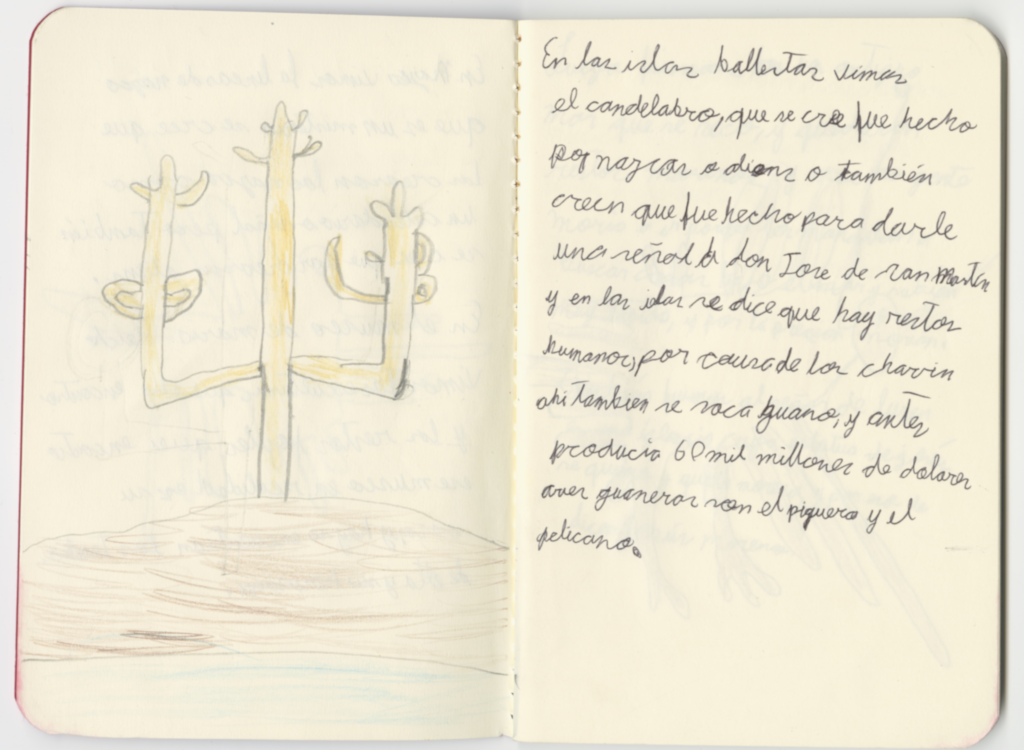 En las islas ballestas vimos
el candelabro, que se cree fue hecho
por nazcas o dions o también
creen que fue hecho para darle
una señal a don Jose de san Martin
y en las islas se dice que hay restos
humanos, por causa de los chavin
ahi tambien se saca guano, y antes
producia 60 mil millones de dolares
aves guaneras son el piquero y el
pelicano.